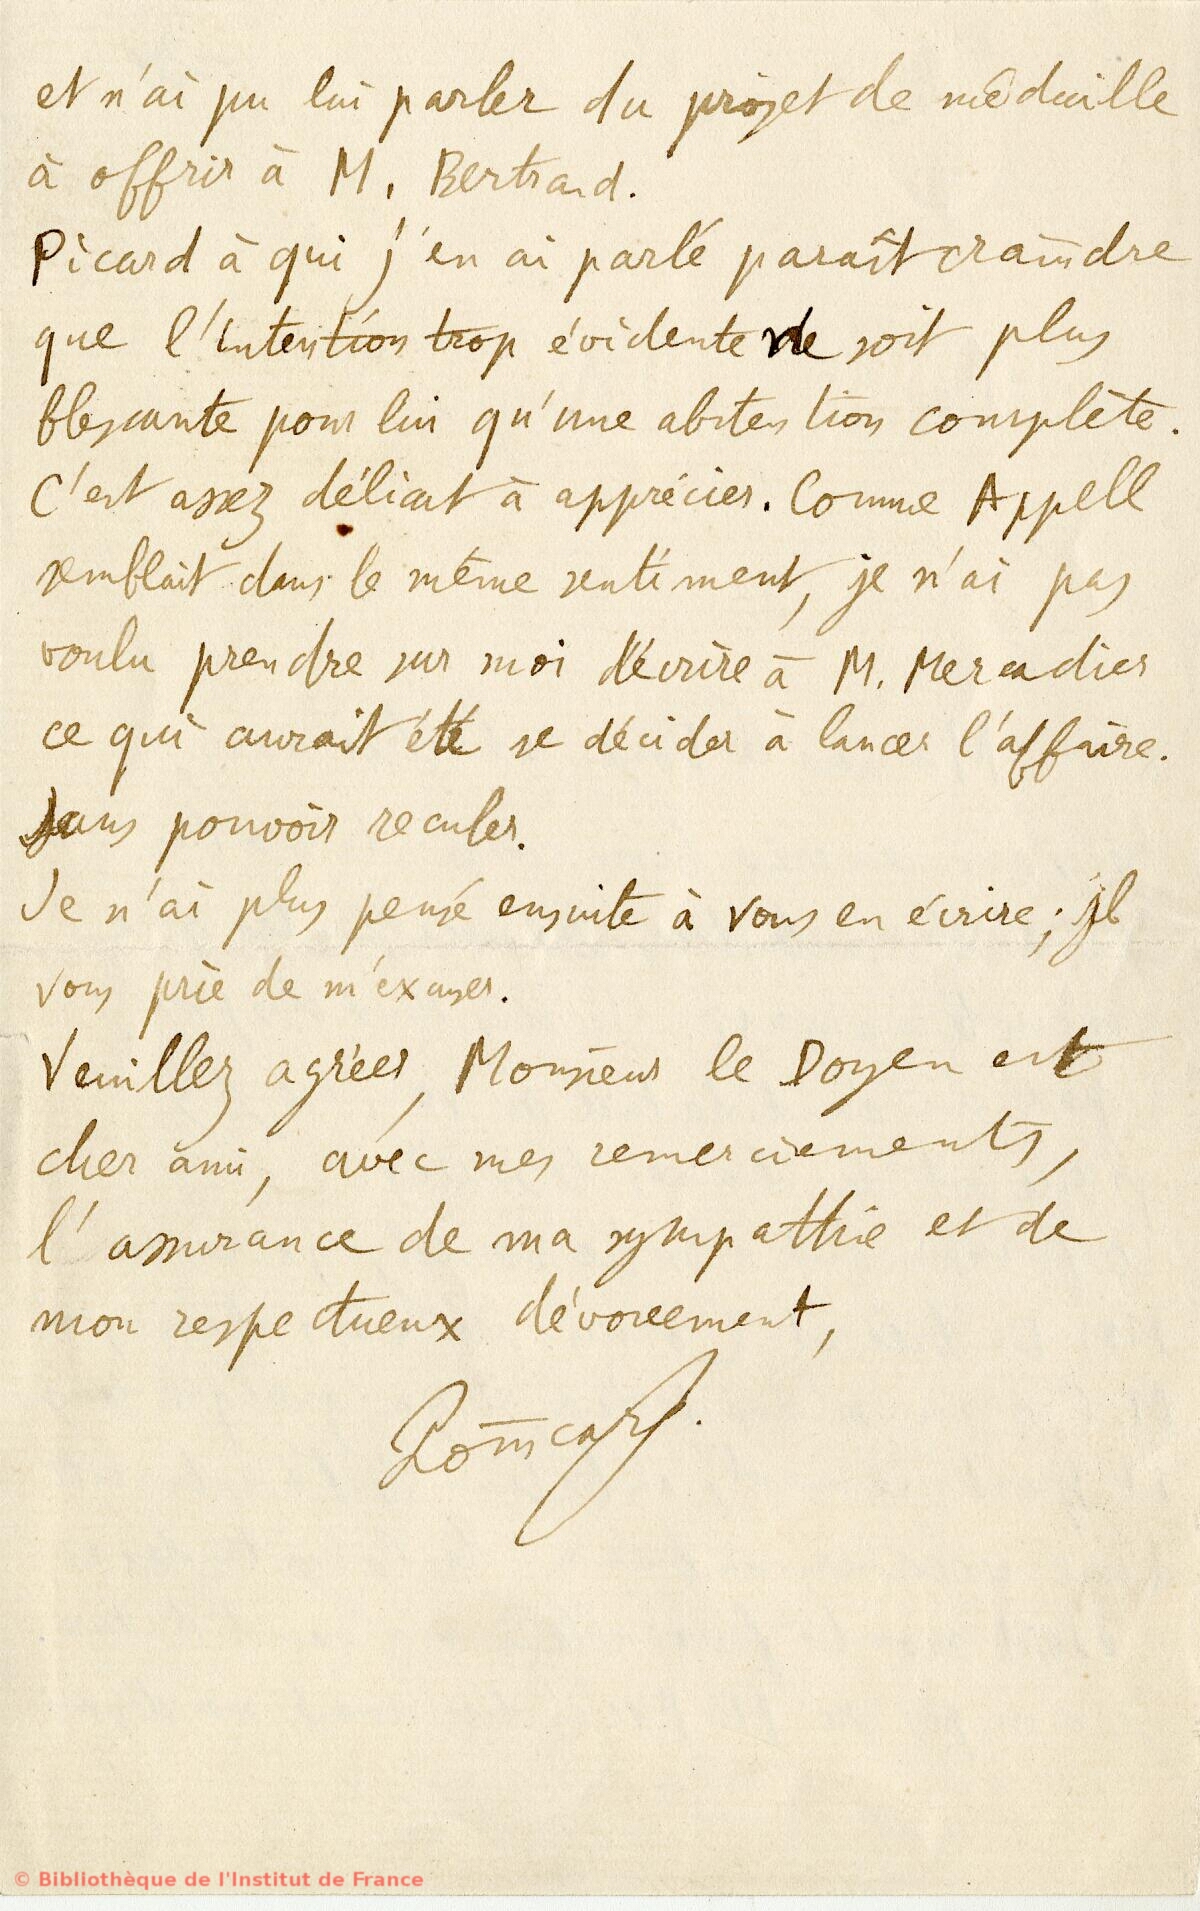 et n'ai pu lui parler du projet de médaille
à offrir à M. Bertrand.
Picard à qui j'en ai parlé paraît craindre
que l'intention trop évidente ne soit plus
blessante pour lui qu'une abstention complète.
C'est assez délicat à apprécier. Comme Appell
semblait dans le même sentiment, je n'ai pas
voulu prendre sur moi d'écrire à M. Mercadier
ce qui aurait été se décider à lancer l'affaire.
sans pouvoir reculer.
Je n'ai plus pensé ensuite à vous en écrire ; je
vous prie de m'excuser.
Veuillez agréer, Monsieur le Doyen et
cher ami, avec mes remerciements,
l'assurance de ma sympathie et de
mon respectueux dévouement,
Poincaré.
© Bibliothèque de l'Institut de France